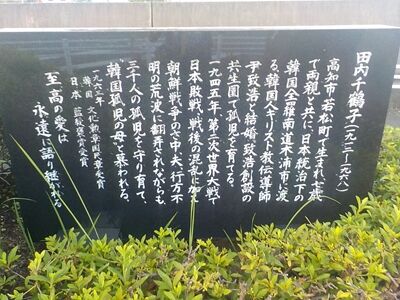 田内千鶴子(一九一二〜一九六八)
高知市若松町で生まれ、七歳
で両親と共に、日本統治下の
韓国全羅南道木浦市に渡
る。韓国人キリスト教伝導師
尹致浩と結婚、致浩創設の
共生園で孤児を育てる。
一九四五年、第二次世界大戦で
日本敗戦、戦後の混乱に加え
朝鮮戦争の中、夫、行方不
明の荒波に翻弄されながらも、
三千人の孤児を守り育て、
"韓国孤児の母"と慕われる。
一九六三年
韓国 文化勲章国民章受賞
日本 藍綬褒章受賞
至高の愛は
永遠に語り継がれる